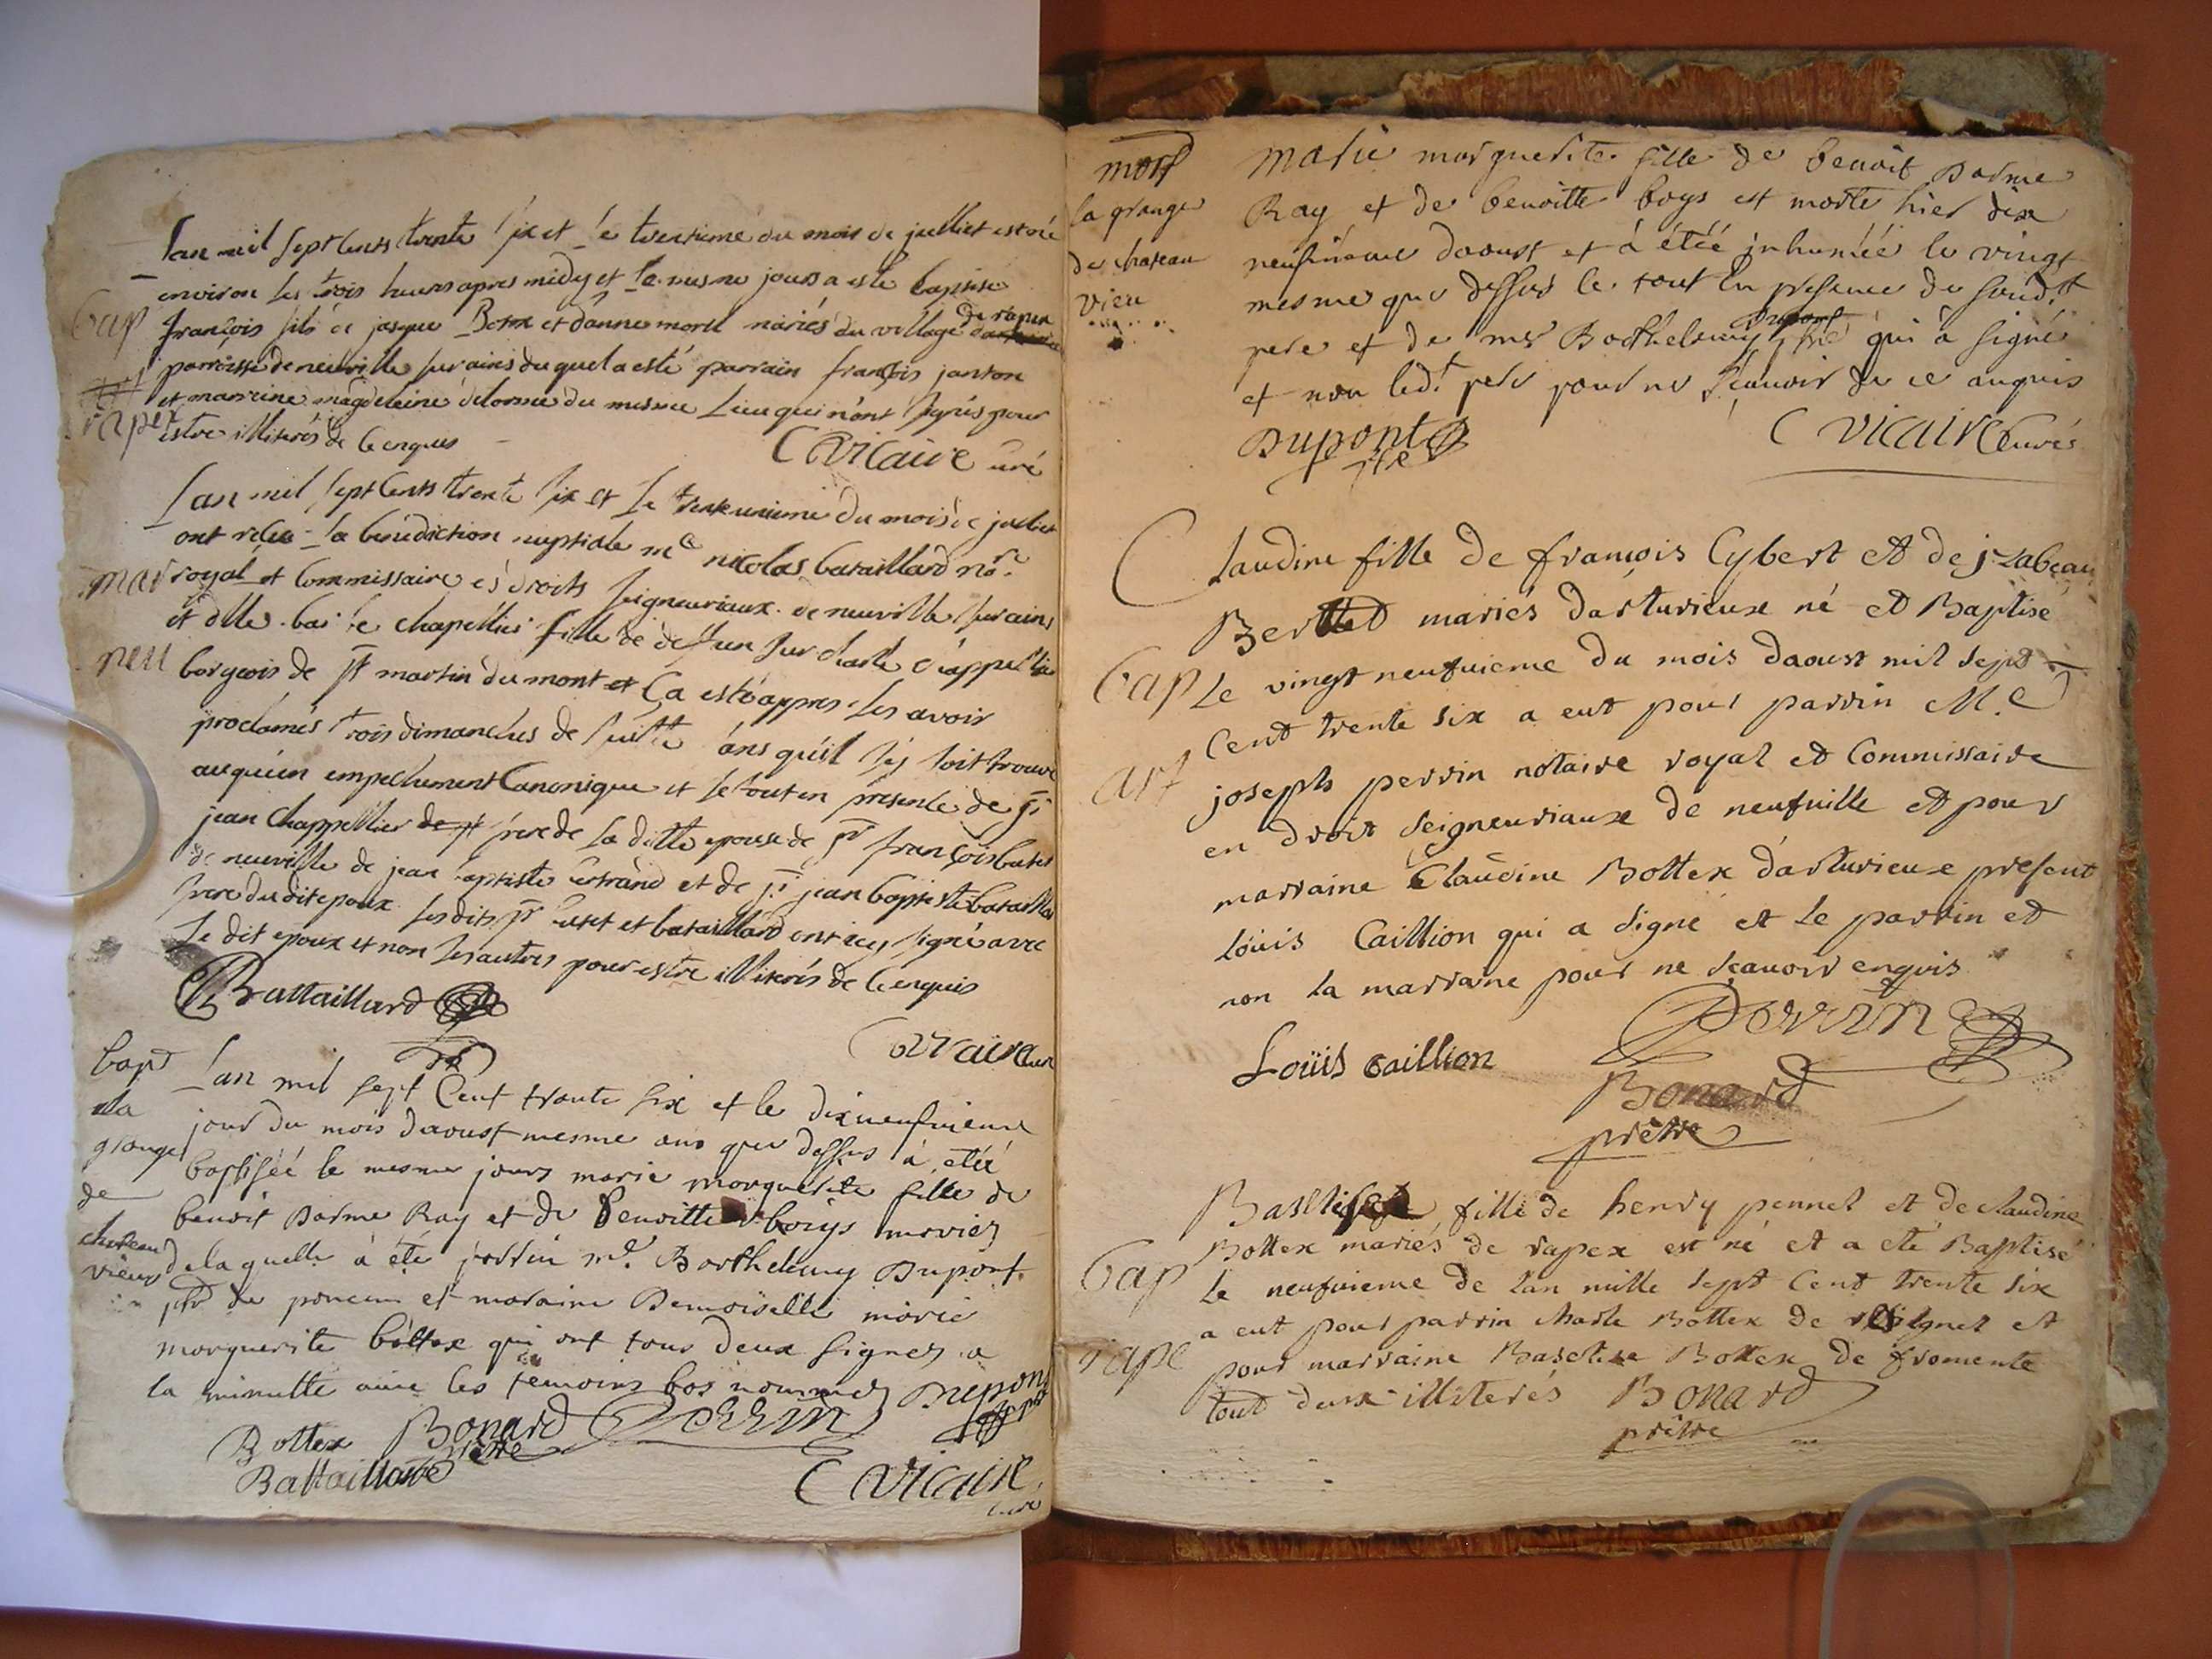 Lan mil sept cents trente six et le treizieme du mois de juilliet est né
environ les trois heures apres midy et le mesme jours a esté baptisé
bap françois fils de jacque et danne morel mariés du village de rapex
parroisse de neuville sur ains du quel a esté parrain françois janton
et marreine magdeleine delorme du mesme Lieu qui n'ont signés pour
rapex estre illiterés de ce enquis
C Vicaire curé
Lan mil sept Cents trente six et Le trente unieme du mois de juilliet
ont receu la bénédiction nuptiale me nicolas bataillard nore
mar royal et Commissaire és droits seigneuriaux de neuville sur ains
et dlle chapellier fille de deffun sur charle chappellier
neu borgeois de st martin du mont et Ça esté appres les avoir
proclamés trois dimanches de suitte sans qu'il s'ej soit trouvé
auqu'un empechement Canonique et le tout en presence de sr
jean Chappellier frere de la ditte epouse de sr françois butet
de neuville de jean baptiste et de sr jean baptiste bataillard
frere du dit epoux les dits sr butet et bataillard ont icy signé avec
le dit epoux et non les autres pour estre illiterés de ce enquis
Battaillard
C Vicaire curé
bap Lan mil sept Cent trante six et le dixneufvieme
la jour du mois daoust mesme ans que dessus à etéé
grange baptiséé le mesme jours marie marguerite fille de
de benoit darme Ray et de benoitte boys mariez
chateau vieux delaquelle à été parrin me Barthelemy Dupont
ptre de poncin et maraine Demoiselle marie
marguerite bottex qui ont tous deux signez a
la minutte avec les temoins bas nommez Dupont
Bottex Bonard prêtre Perrin ptre
Battaillard C Vicaire
curé
mort marie marguerite fille de benoit darme
la grange Ray et de benoitte boys est morte hier dix
de chateau neufvieme daoust et à étéé jnhumée le vingt
vieu mesme que dessus le tout en presence du susdt
pere et de mes Barthelemy Dupont ptre qui à signé
et non ledt pere pour ne sçauoir de ce anquis
Dupont ptre C Vicaire Curé
Claudine fille de françois Cybert et de jzabeau
Bertet mariés darturieux né et Baptisé
bap Le vingt neufuieme du mois daoust mil sept
Cent trente six a eut pour parrin M.e
art joseph perrin notaire royal et Commissaire
en droit seigneuriaux de neufuille et pour
marraine Claudine Bottex darturieux present
löuis Caillion qui a signé et le parrin et
non la marraine pour ne sçauoir enquis
Perrin
Loüis Caillion
Bonard
prêtre
fille de henry pennet et de claudine
Bottex mariés de rapex est né et a eté Baptisé
bap Le neufuieme de lan mille sept Cent trente six
a eut pour parrin charle Bottex de et
rape pour marraine Bottex de fromente
tout deux illiterés Bonard
prêtre